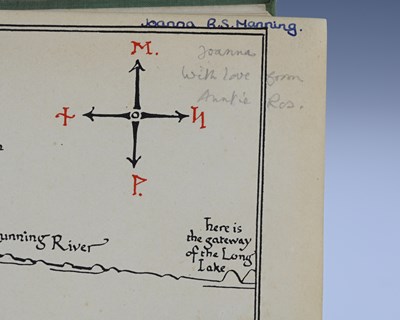 Joanna R.S. Manning.
Joanna
With love from
Auntie Ros.
M.
P.
unning River
here is
the gateway
of the Long
Lake